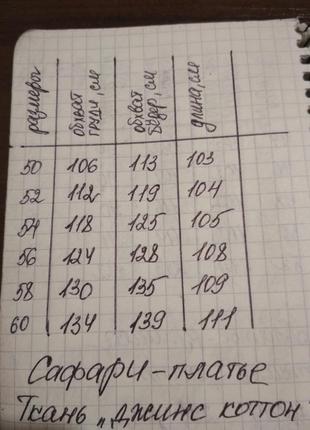 размеры обхват груди, см обхват бёдер, см длина, см
50 106 113 103
52 112 119 104
54 118 125 105
56 124 128 108
58 130 135 109
60 134 139 111
Сафари-платье
Ткань „джинс коттон"